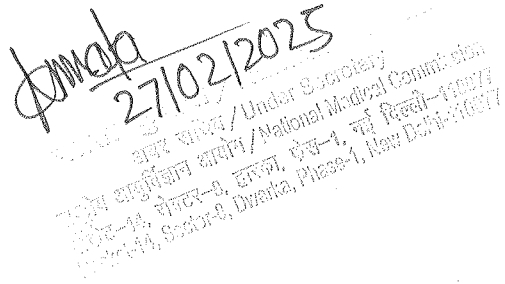 27/02/2025
अवर सचिव / Under Secretary
आयुर्विज्ञान आयोग / National Medical Commission
पॉकेट-14, सेक्टर-8, द्वारका, फेस-1, नई दिल्ली-110077
Pocket-14, Sector-8, Dwarka, Phase-1, New Delhi-110077